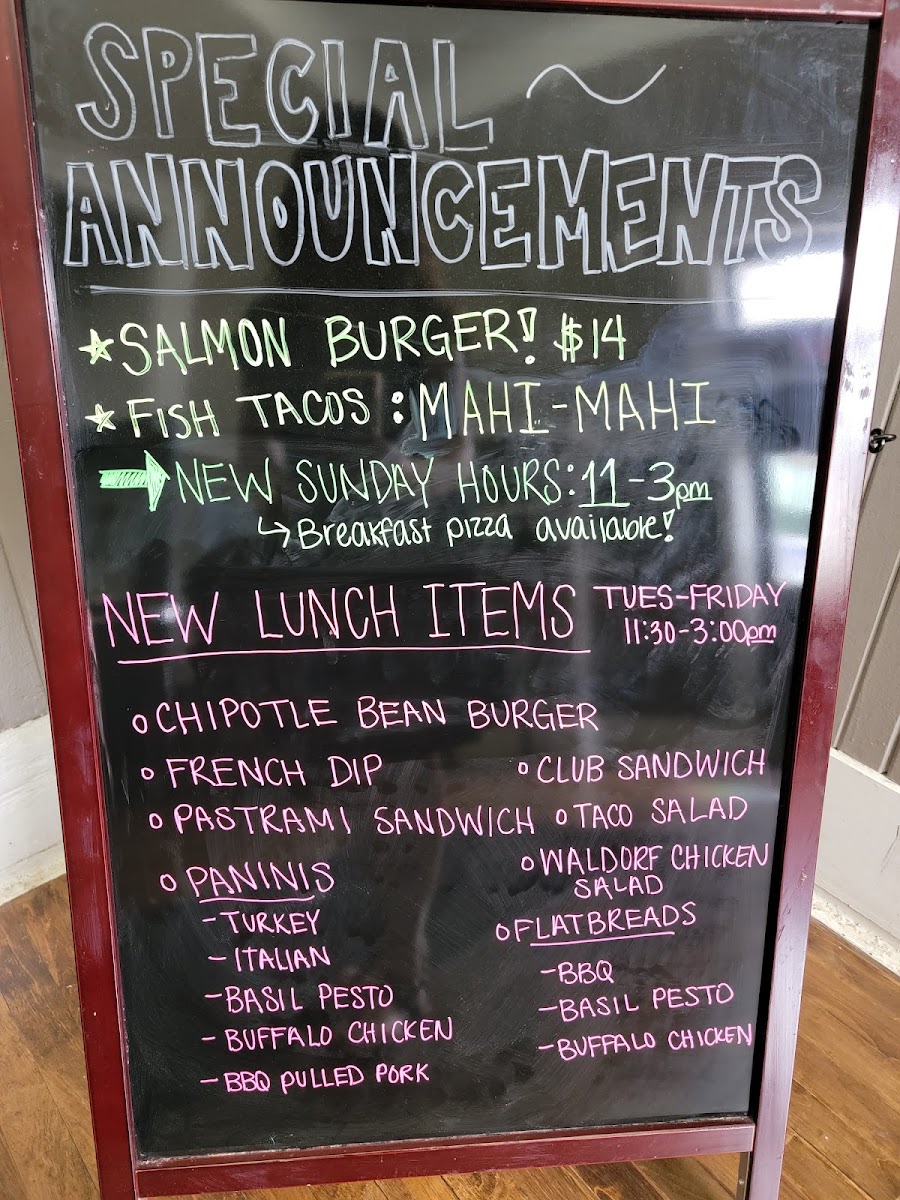 SPECIAL ~
ANNOUNCEMENTS
★ SALMON BURGER! $14
★ FISH TACOS : MAHI-MAHI
→ NEW SUNDAY HOURS: 11-3pm
↳ Breakfast pizza available!
NEW LUNCH ITEMS
TUES-FRIDAY
11:30-3:00pm
o CHIPOTLE BEAN BURGER
o FRENCH DIP
o PASTRAMI SANDWICH
o PANINIS
- TURKEY
- ITALIAN
- BASIL PESTO
- BUFFALO CHICKEN
- BBQ PULLED PORK
o CLUB SANDWICH
o TACO SALAD
o WALDORF CHICKEN
SALAD
o FLATBREADS
- BBQ
- BASIL PESTO
- BUFFALO CHICKEN